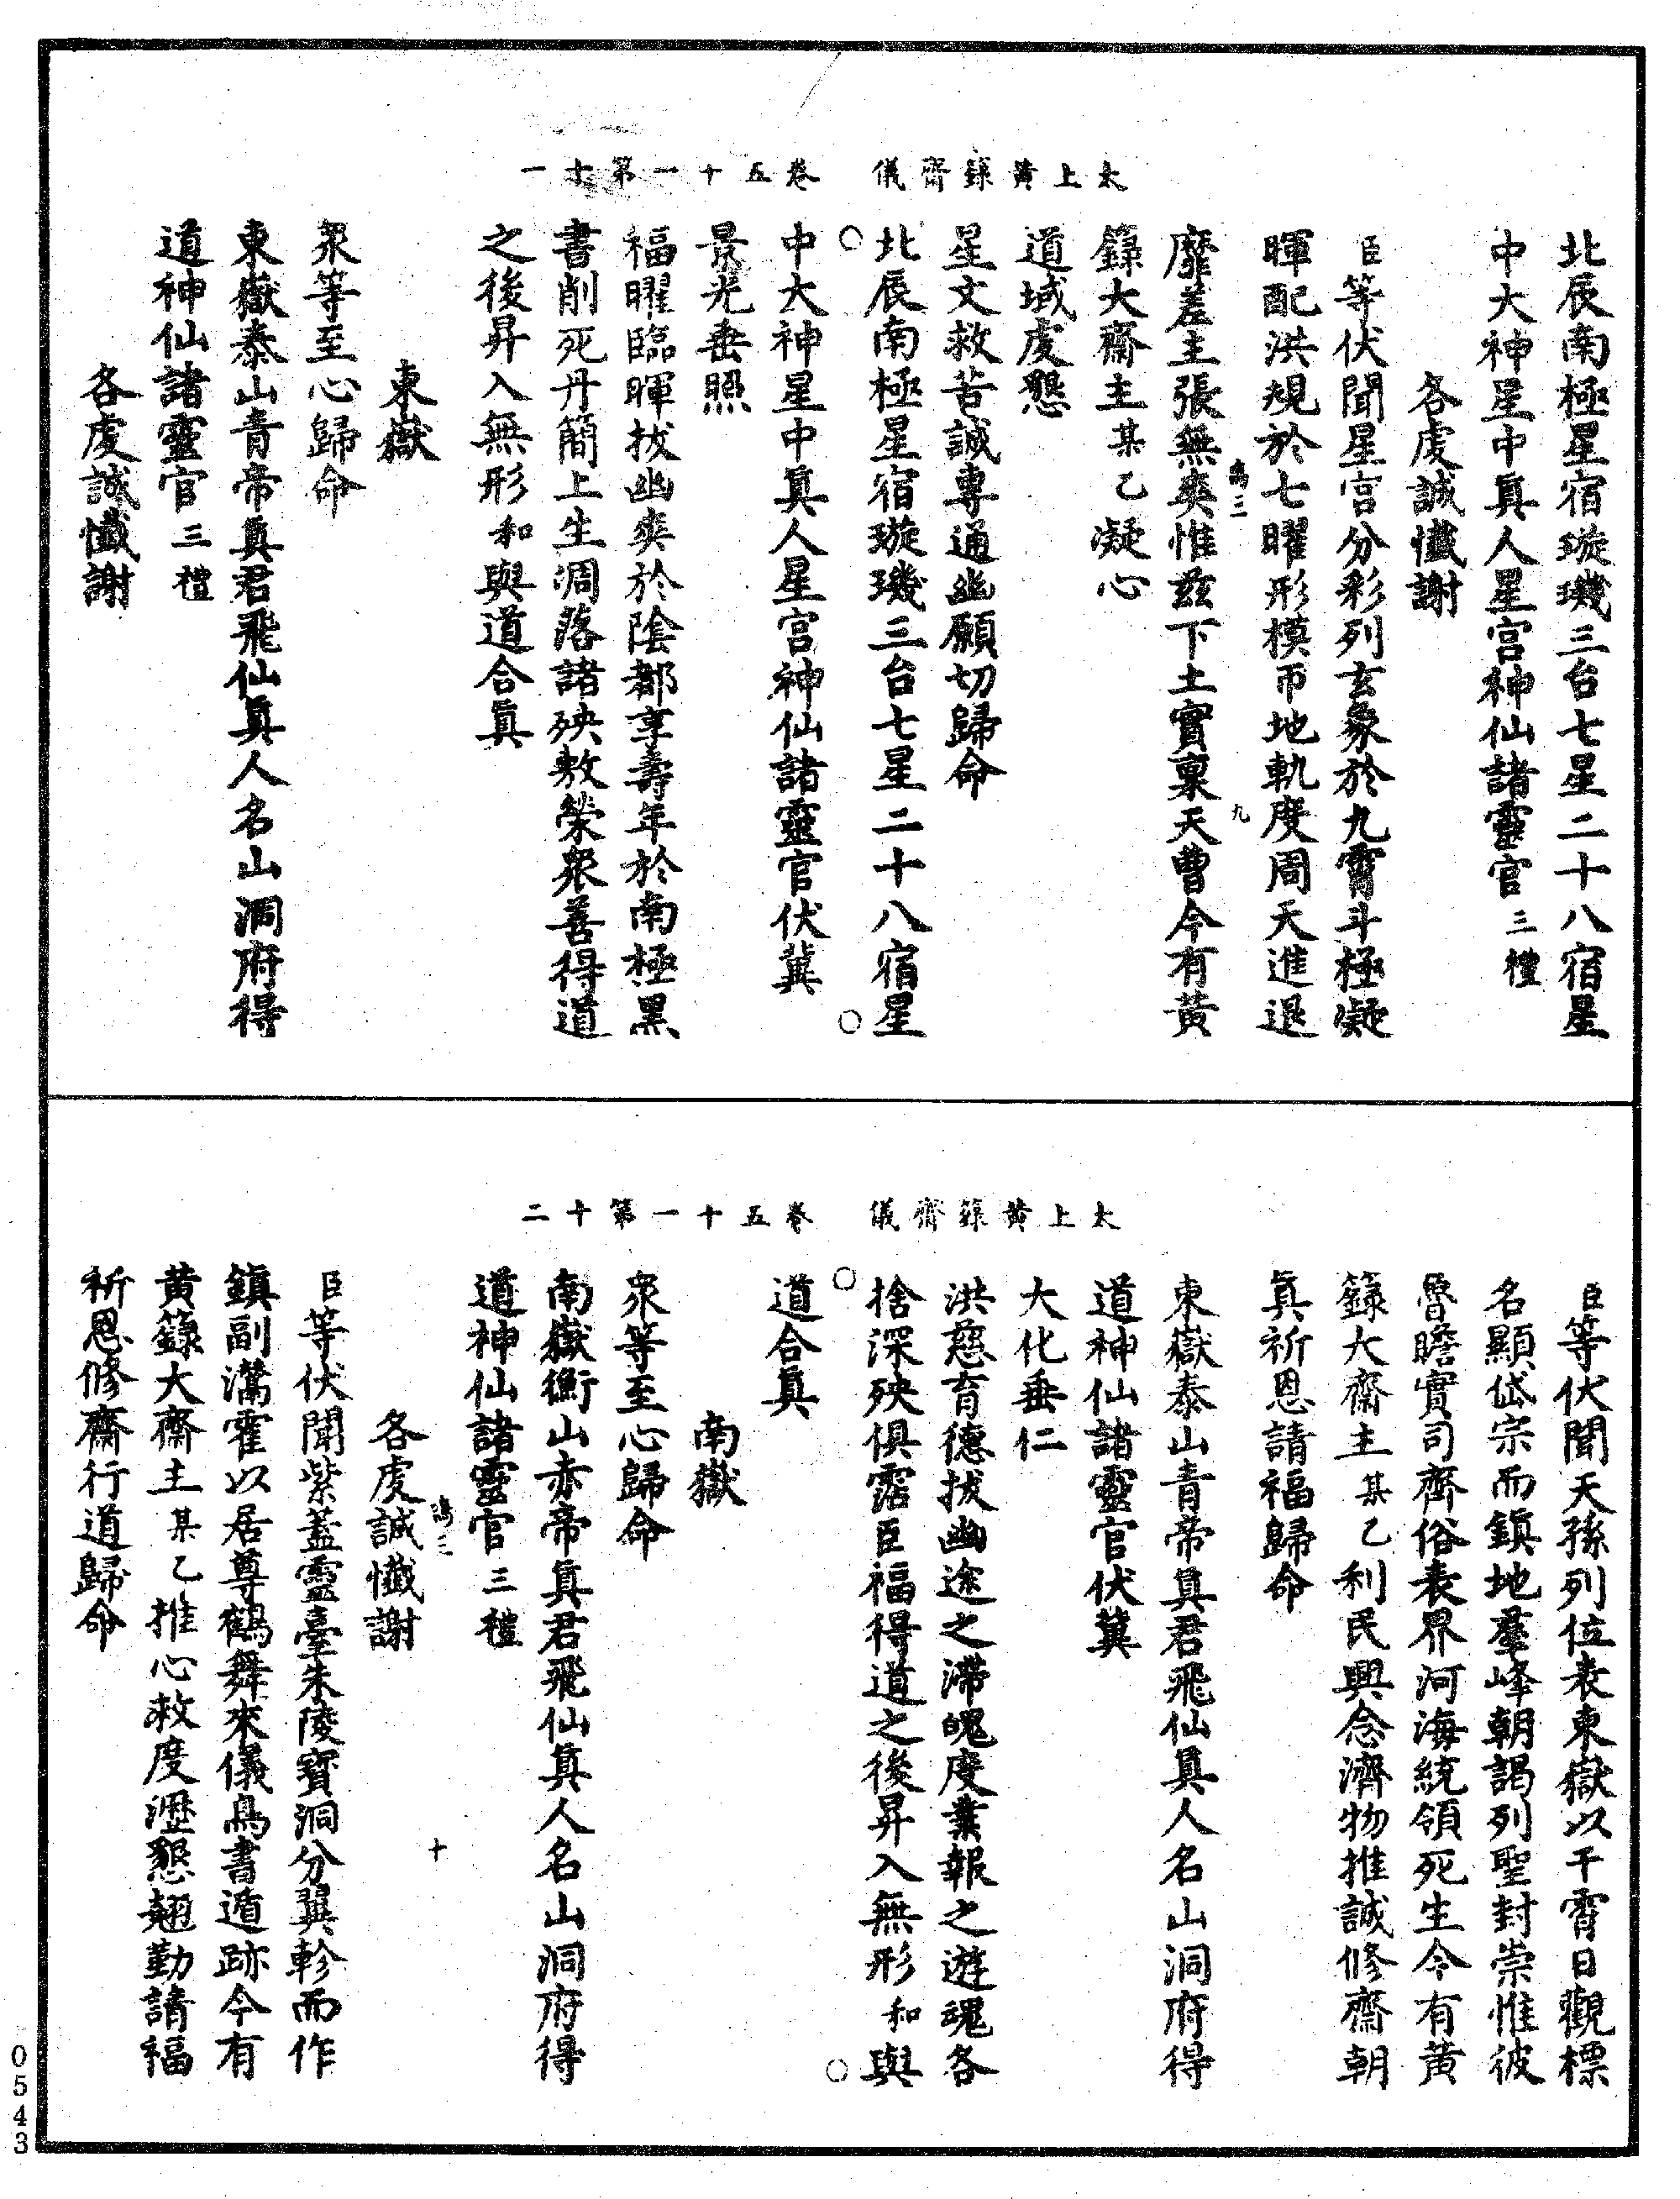 太上黃籙齋儀　卷五十一第十一
北辰南極星宿璇璣三台七星二十八宿星
中大神星中眞人星宮神仙諸靈官三禮
各虔誠懺謝
臣等伏聞星宮分彩列玄象於九霄斗極凝
暉配洪規於七曜形模帀地軌度周天進退
三
九
靡差主張無爽惟茲下土實稟天曹今有黃
籙大齋主某乙凝心
道域虔懇
星文救苦誠專通幽願切歸命
北辰南極星宿璇璣三台七星二十八宿星
中大神星中眞人星宮神仙諸靈官伏冀
景光垂照
福曜臨暉拔幽爽於陰都享壽年於南極黑
書削死丹簡上生凋落諸殃敷榮衆善得道
之後昇入無形和與道合眞
東嶽
衆等至心歸命
東嶽泰山青帝眞君飛仙眞人名山洞府得
道神仙諸靈官三禮
各虔誠懺謝
太上黃籙齋儀　卷五十一第十二
臣等伏聞天孫列位表東嶽以干霄日觀標
名顯岱宗而鎮地羣峰朝謁列聖封崇惟彼
魯瞻實司齊俗表界河海統領死生今有黃
籙大齋主某乙利民興念濟物推誠修齋朝
眞祈恩請福歸命
東嶽泰山青帝眞君飛仙眞人名山洞府得
道神仙諸靈官伏冀
大化垂仁
洪慈育德拔幽途之滯魄度業報之遊魂各
捨深殃俱霑巨福得道之後昇入無形和與
道合眞
南嶽
衆等至心歸命
南嶽衡山赤帝眞君飛仙眞人名山洞府得
道神仙諸靈官三禮
三
十
各虔誠懺謝
臣等伏聞紫蓋靈臺朱陵寶洞分翼軫而作
鎮副灊霍以居尊鶴舞來儀鳥書遁跡今有
黃籙大齋主某乙推心救度瀝懇翹勤請福
祈恩修齋行道歸命
0543